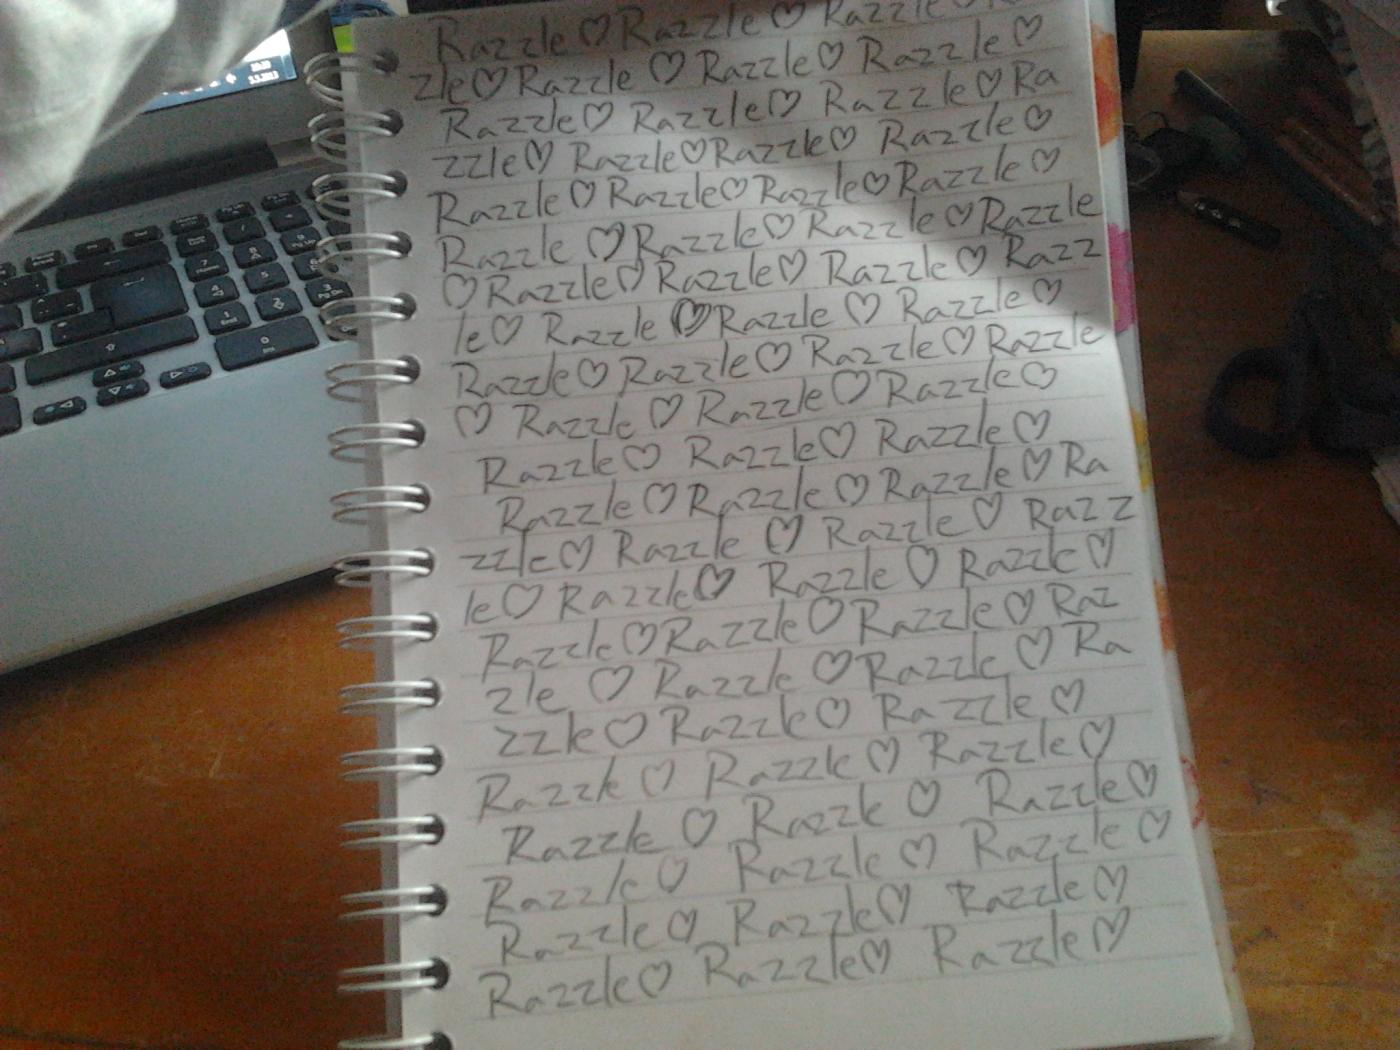 Razzle♡Razzle♡Razzle♡
zzle♡Razzle♡Razzle♡Razzle♡
Razzle♡Razzle♡Razzle♡Ra
zzle♡Razzle♡Razzle♡Razzle♡
Razzle♡Razzle♡Razzle♡Razzle♡
Razzle♡Razzle♡Razzle♡Razzle
♡Razzle♡Razzle♡Razzle♡Razz
le♡Razzle♡Razzle♡Razzle♡
Razzle♡Razzle♡Razzle♡Razzle
♡Razzle♡Razzle♡Razzle♡
Razzle♡Razzle♡Razzle♡
Razzle♡Razzle♡Razzle♡Ra
zzle♡Razzle♡Razzle♡Razz
le♡Razzle♡Razzle♡Razzle♡
Razzle♡Razzle♡Razzle♡Raz
zle♡Razzle♡Razzle♡Ra
zzle♡Razzle♡Razzle♡
Razzle♡Razzle♡Razzle♡
Razzle♡Razzle♡Razzle♡
Razzle♡Razzle♡Razzle♡
Razzle♡Razzle♡Razzle♡
Razzle♡Razzle♡Razzle♡